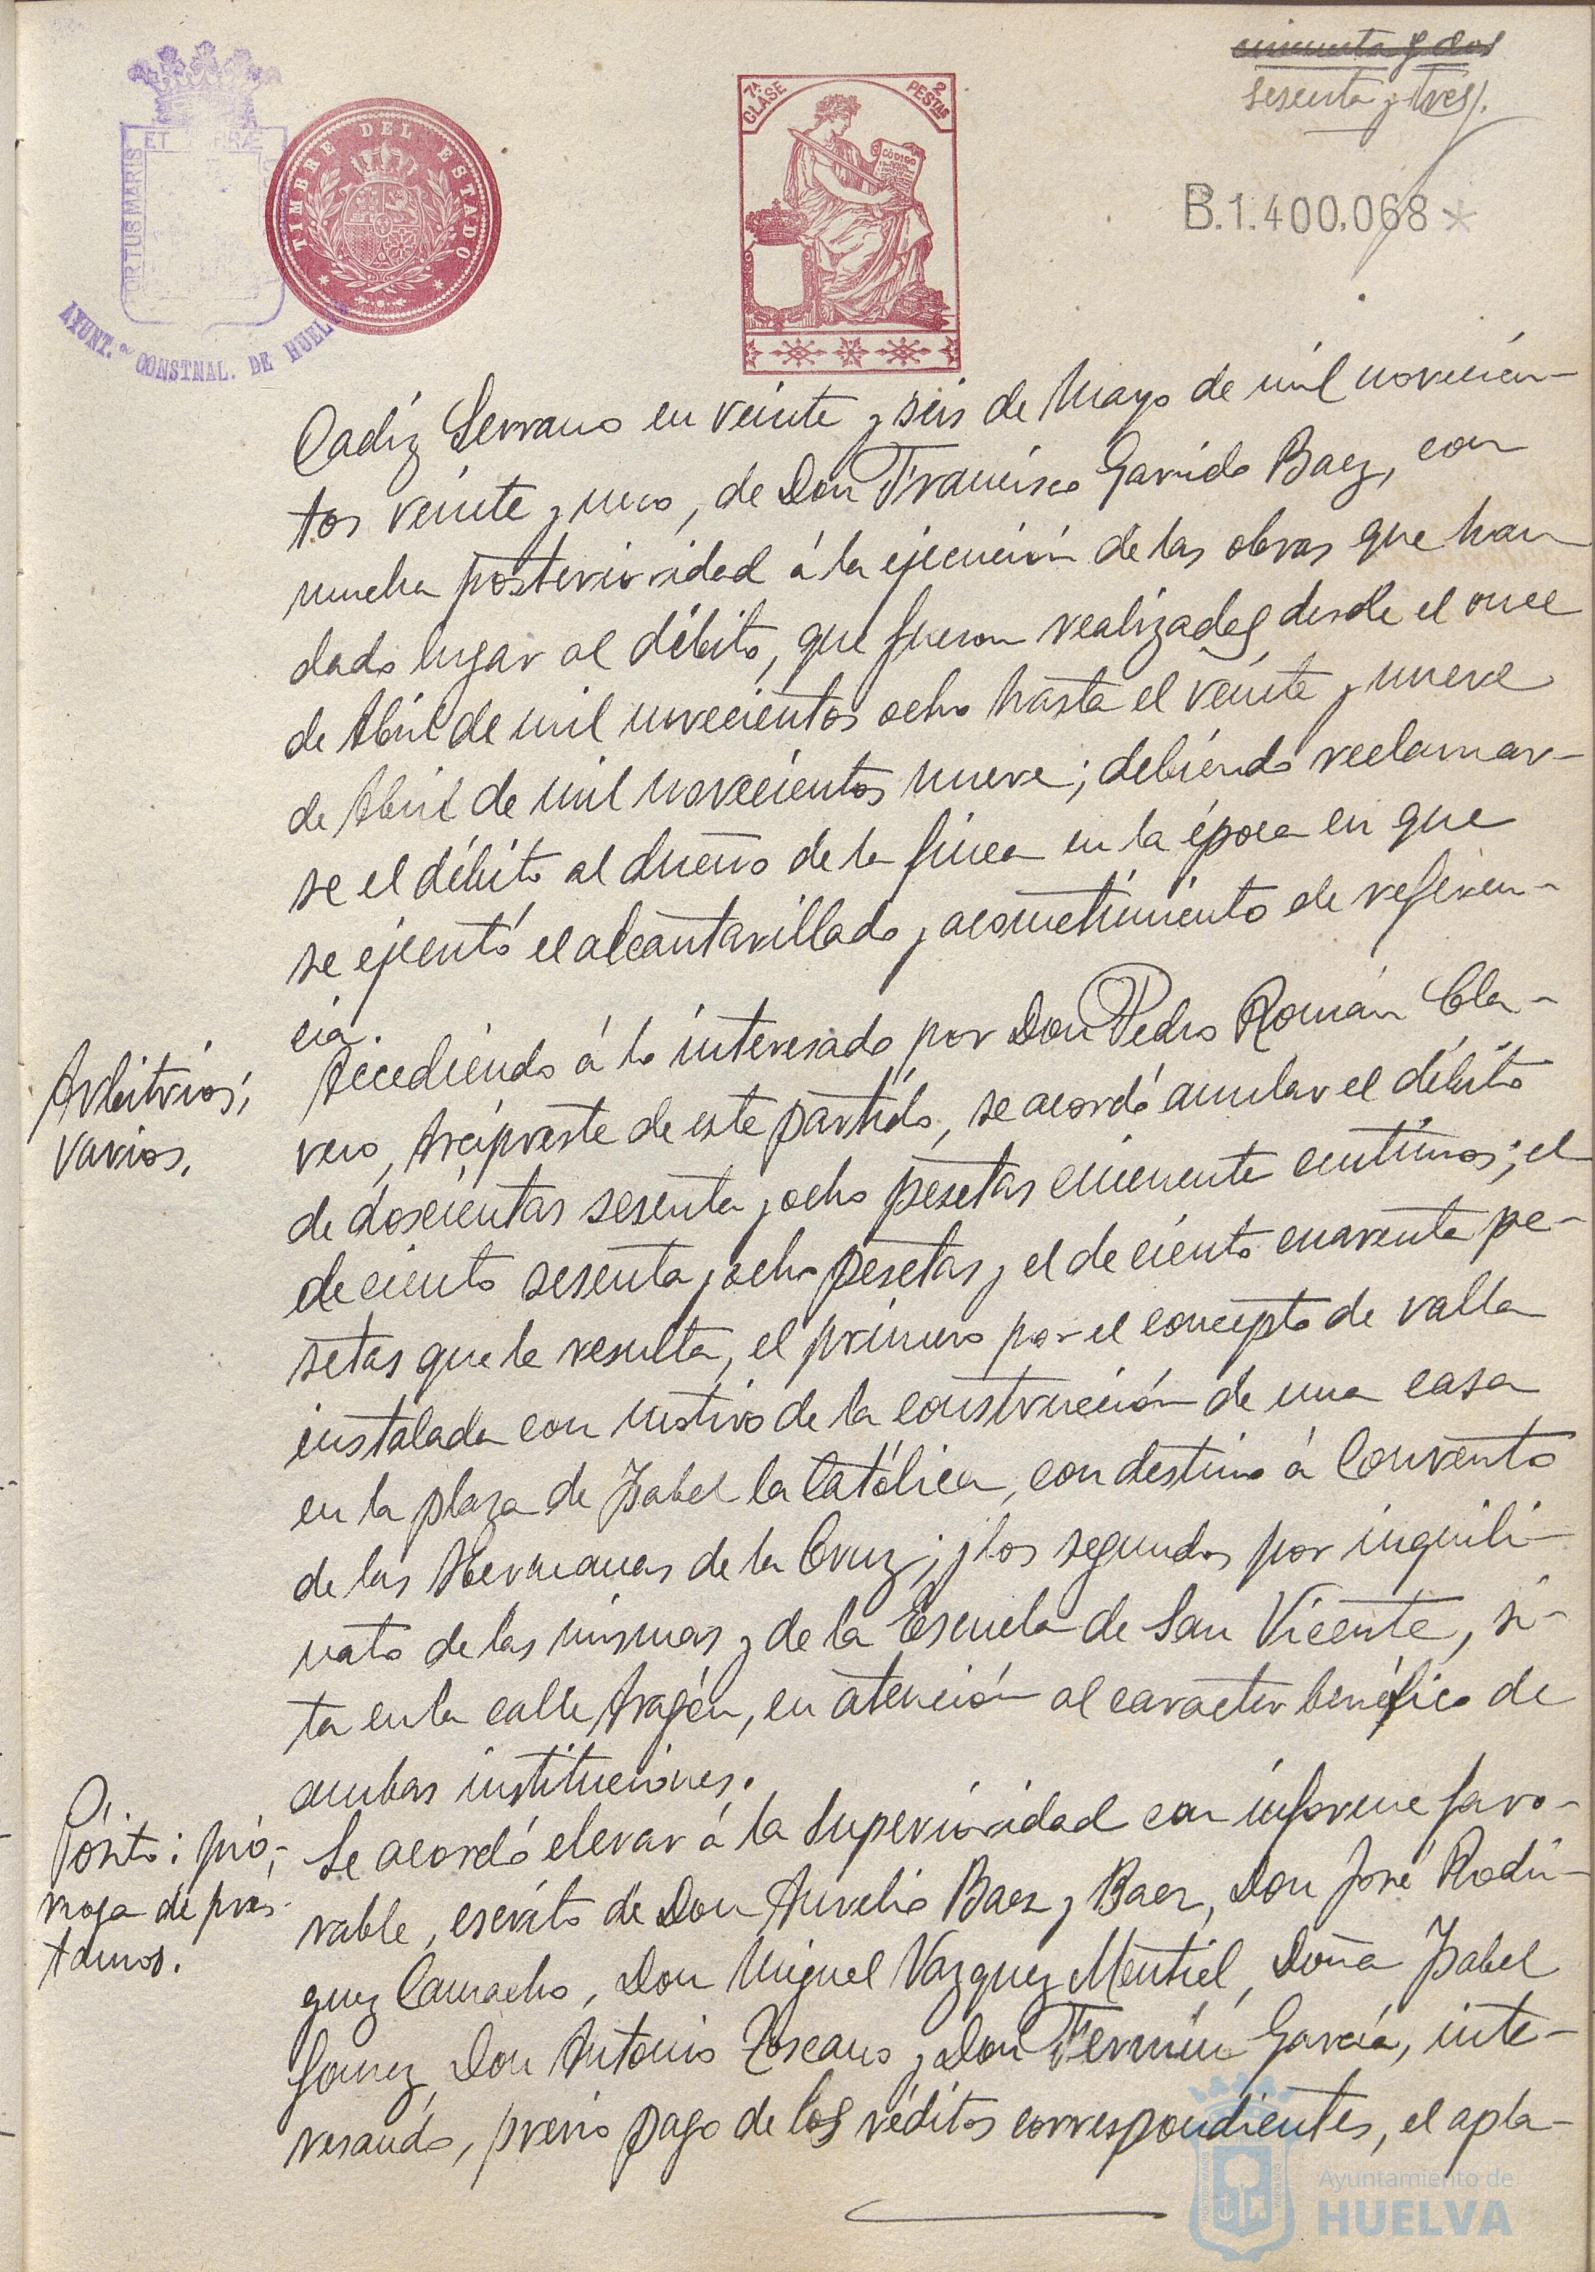 cincuenta y dos
sesenta y tres.
ET TERRÆ
PORTUS MARIS
AYUNT.º CONSTNAL. DE HUELVA
TIMBRE DEL ESTADO
7ª CLASE
2 PESTAS
CODIGO
B.1.400.068*
Cadiz Serrano en veinte y seis de Mayo de mil novecien-
tos veinte y uno, de Don Francisco Garrido Baez, con
mucha posterioridad á la ejecución de las obras que han
dado lugar al débito, que fueron realizadas desde el once
de Abril de mil novecientos ocho hasta el veinte y nueve
de Abril de mil novecientos nueve; debiendo reclamar-
se el débito al dueño de la finca en la época en que
se ejecutó el alcantarillado y acometimiento de referen-
cia.
Arbitrios;
varios.
Accediendo á lo interesado por Don Pedro Román Cla-
vero, Arcipreste de este partido, se acordó anular el débito
de doscientas sesenta y ocho pesetas cincuenta centimos; el
de ciento sesenta y ocho pesetas y el de ciento cuarenta pe-
setas que le resulta, el primero por el concepto de valla
instalada con motivo de la construcción de una casa
en la plaza de Isabel la Católica, con destino á Convento
de las Hermanas de la Cruz; y los segundos por inquili-
nato de las mismas y de la Escuela de San Vicente, si-
ta en la calle Aragón, en atención al caracter benéfico de
ambas instituciones.
Pósito: pró-
rroga de prés-
tamos.
Se acordó elevar á la Superioridad con informe favo-
rable, escrito de Don Aurelio Baez y Baez, Don José Rodri-
guez Camacho, Don Miguel Vazquez Montiel, Doña Isabel
Gomez, Don Antonio Toscano y Don Fermín García, inte-
resando, previo pago de los réditos correspondientes, el apla-
Ayuntamiento de
HUELVA